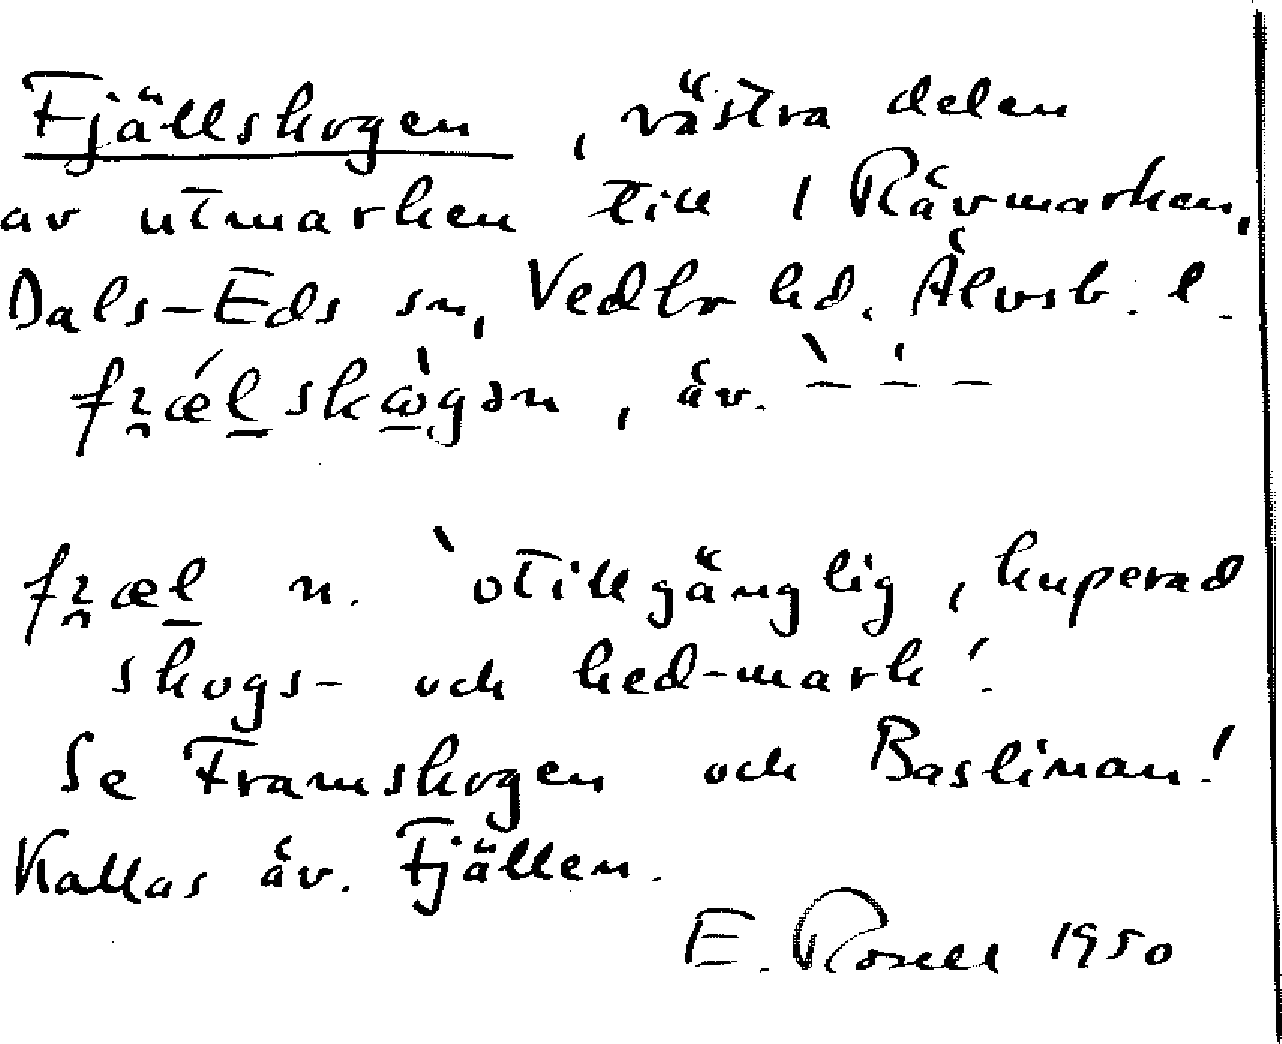 Fjällskogen, västra delen
av utmarken till 1 Rävmarken,
Dals-Eds sn, Vedbo hd. Älvsb. l.
fɿ̯ǽl̲skὼ̲gən, äv. `– ´– –
fɿ̯æl̲ n. `otillgänglig, kuperad
skogs- och hed-mark´.
Se Framskogen och Baslinan!
Kallas äv. Fjällen.
E. Rosell 1950